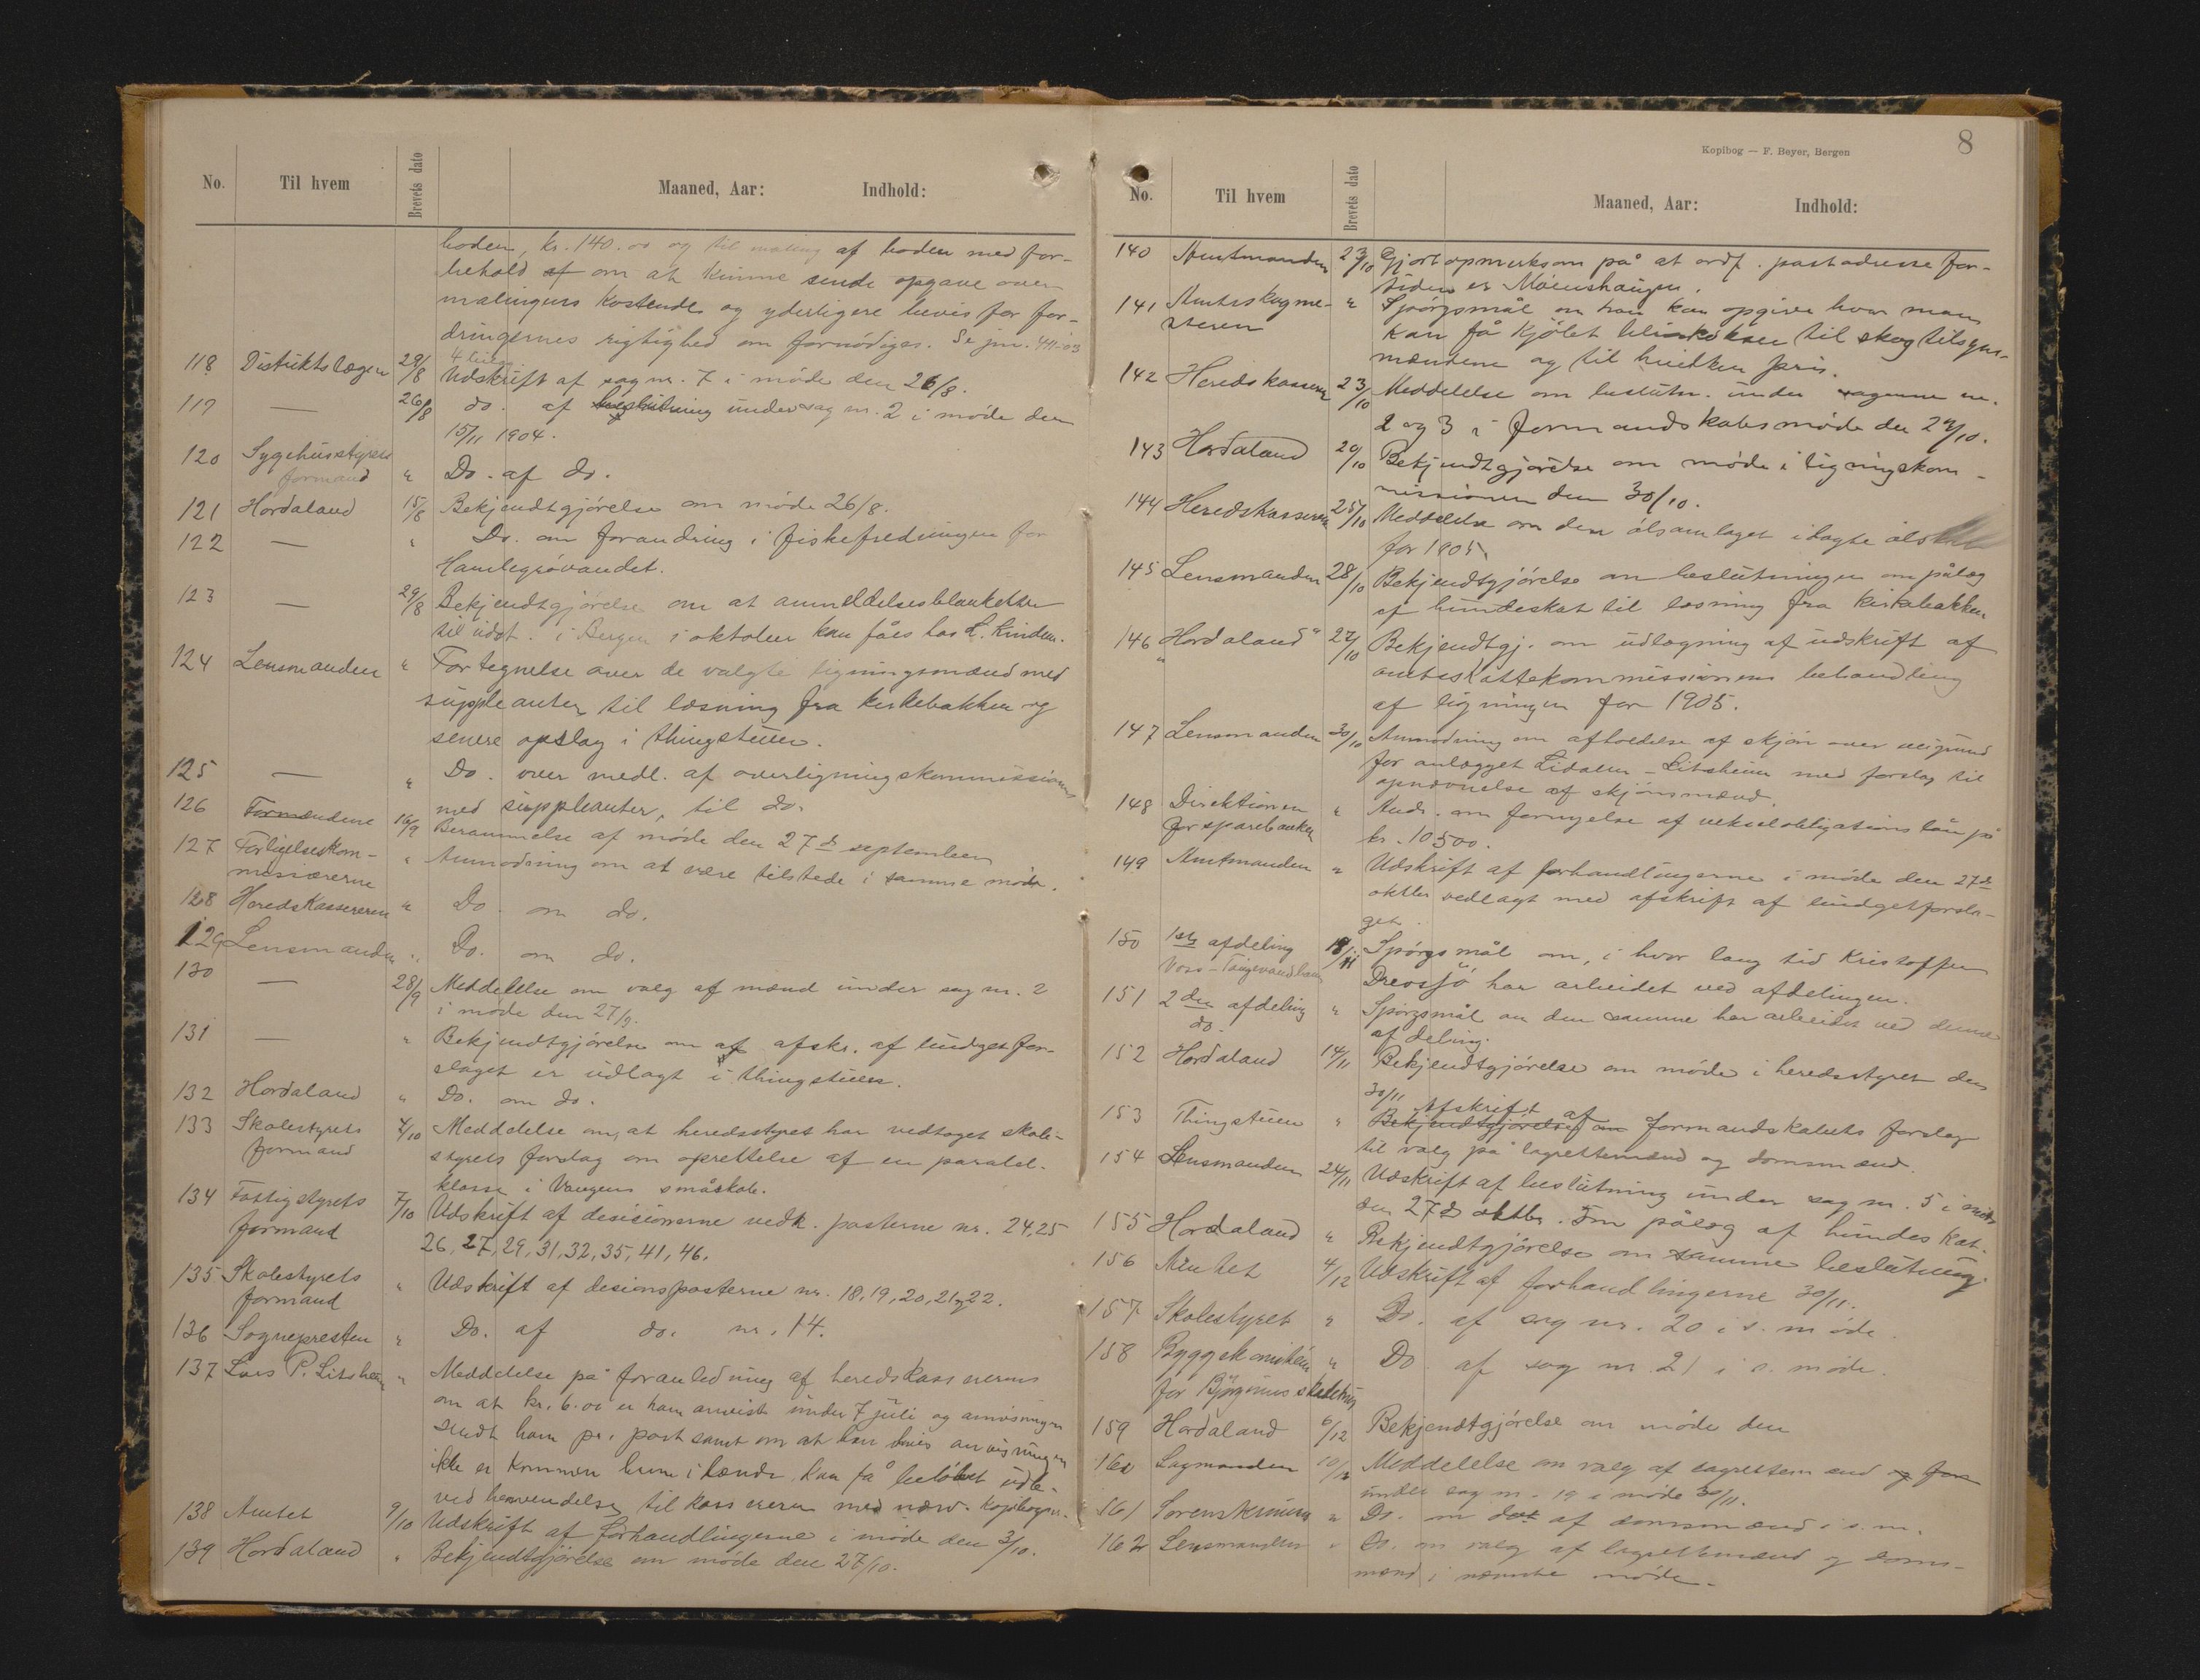 No. Til hvem Brevets dato Maaned, Aar: Indhold:
boden, kr. 140.00 og til maling af boden med for-
behold af om at kunne sende opgave over
malingens kostende og yderligere bevis for for-
dringernes rigtighed om fornödiges. Se jnr. 411-03
4 bilag.
118 Distriktslægen 29/8 Udskrift af sag nr. 7 i möde den 26/8.
119 — 26/8 do. af beslutning under sag nr. 2 i möde den
15/11 1904.
120 Sygehusstyrets
formand " Do. af do.
121 Hordaland 15/8 Bekjendtgjörelse om möde 26/8.
122 — " Do. om forandring i fiskefredningen for
Hamlegrövandet.
123 — 29/8 Bekjendtgjörelse om at anmeldelsesblanketter
til udst. i Bergen i oktober kan fåes hos L. Kinden.
124 Lensmanden " Fortegnelse over de valgte ligningsmænd med
suppleanter, til læsning fra kirkebakken og
senere opslag i thingstuen.
125 — " Do. over medl. af overligningskommissionen
med suppleanter, til do.
126 Formændene 16/9 Berammelse af möde den 27de september
127 Forligelseskom-
missærerne " Anmodning om at være tilstede i samme möde.
128 Heredskassereren " Do. om do.
129 Lensmanden " Do. om do.
130 — 28/9 Meddelelse om valg af mænd under sag nr. 2
i möde den 27/9.
131 — " Bekjendtgjörelse om af afskr. af budgetfor-
slaget er udlagt i thingstuen.
132 Hordaland " Do. om do.
133 Skolestyrets
formand 7/10 Meddelelse om, at heredsstyret har vedtaget skole-
styrets forslag om oprettelse af en paralel-
klasse i Vangens småskole.
134 Fattigstyrets
formand 7/10 Udskrift af desisionerne vedk. posterne nr. 24, 25
26, 27, 29, 31, 32, 35, 41, 46.
135 Skolestyrets
formand " Udskrift af desionsposterne nr. 18, 19, 20, 21 og 22.
136 Sognepresten " Do. af do. nr. 14.
137 Lars P. Litsheim " Meddelelse på foranledning af heredskassererens
om at kr. 6.00 er ham anvist under 7 juli og anvisningen
sendt ham pr. post samt om at han hvis anvisningen
ikke er kommen ham ihænde, kan få belöbet udb.
ved henvendelse til kassereren med nærv. kopibognr.
138 Amtet 9/10 Udskrift af forhandlingerne i möde den 3/10.
139 Hordaland " Bekjendtgjörelse om möde den 27/10.
8
Kopibog — F. Beyer, Bergen
No. Til hvem Brevets dato Maaned, Aar: Indhold:
140 Amtmanden 23/10 Gjort opmerksom på at ordf. postadresse for-
tiden er Möenshaugen.
141 Amtsskogme-
steren " Spörgsmål om han kan opgive hvor man
kan få kjöbt til skogtilsyns-
mændene og til hvilken pris.
142 Heredskasseren 23/10 Meddelelse om beslutn. under sagerne nr.
2 og 3 i formandskabsmöde den 2/10.
143 Hordaland 20/10 Bekjendtgjörelse om möde i ligningskom-
missionen den 30/10.
144 Heredskasseren 25/10 Meddelelse om den ölsamlaget ilagte ölskat
for 1905.
145 Lensmanden 28/10 Bekjendtgjörelse om beslutningen om pålæg
af hundeskat til læsning fra kirkebakken
146 "Hordaland" 27/10 Bekjendtgj. om udlægning af udskrift af
amtsskattekommissionens behandling
af ligningen for 1905.
147 Lensmanden 30/10 Anmodning om afholdelse af skjön over veigrund
for anlægget Lidalen - Litsheim med forslag til
opnævnelse af skjönsmænd.
148 Direktionen
for sparebanken " Andr. om fornyelse af vekselobligationslån på
kr. 10500.
149 Amtmanden " Udskrift af forhandlingerne i möde den 27de
oktbr vedlagt med afskrift af budgetforsla-
get.
150 1ste afdeling
Voss-Taugevandbanen 18/11 Spörgsmål om, i hvor lang tid Kristoffer
har arbeidet ved afdelingen.
151 2den afdeling
do. " Spörgsmål om den samme har arbeidet ved denne
afdeling.
152 Hordaland 14/11 Bekjendtgjörelse om möde i heredsstyret den
30/11
153 Thingstuen " Afskrift af
Bekjendtgjörelse om formandskabets forslag
til valg på lagrettemænd og domsmænd.
154 Lensmanden 24/11 Udskrift af beslutning under sag nr. 5 i möde
den 27de oktbr. om pålæg af hundeskat.
155 Hordaland " Bekjendtgjörelse om samme beslutning.
156 Amtet 4/12 Udskrift af forhandlingerne 30/11.
157 Skolestyret " Do. af sag nr. 20 i s. möde.
158 Byggekomiteen
for skolehus " Do. af sag nr. 21 i s. möde.
159 Hordaland 6/12 Bekjendtgjörelse om möde den
160 Lagmanden 10/12 Meddelelse om valg af lagrettemænd og for
under sag nr. 19 i möde 30/11.
161 Sorenskriveren " Do. om dot af domsmænd i s. m.
162 Lensmanden " Do. om valg af lagrettemænd og doms-
mænd i nævnte möde.